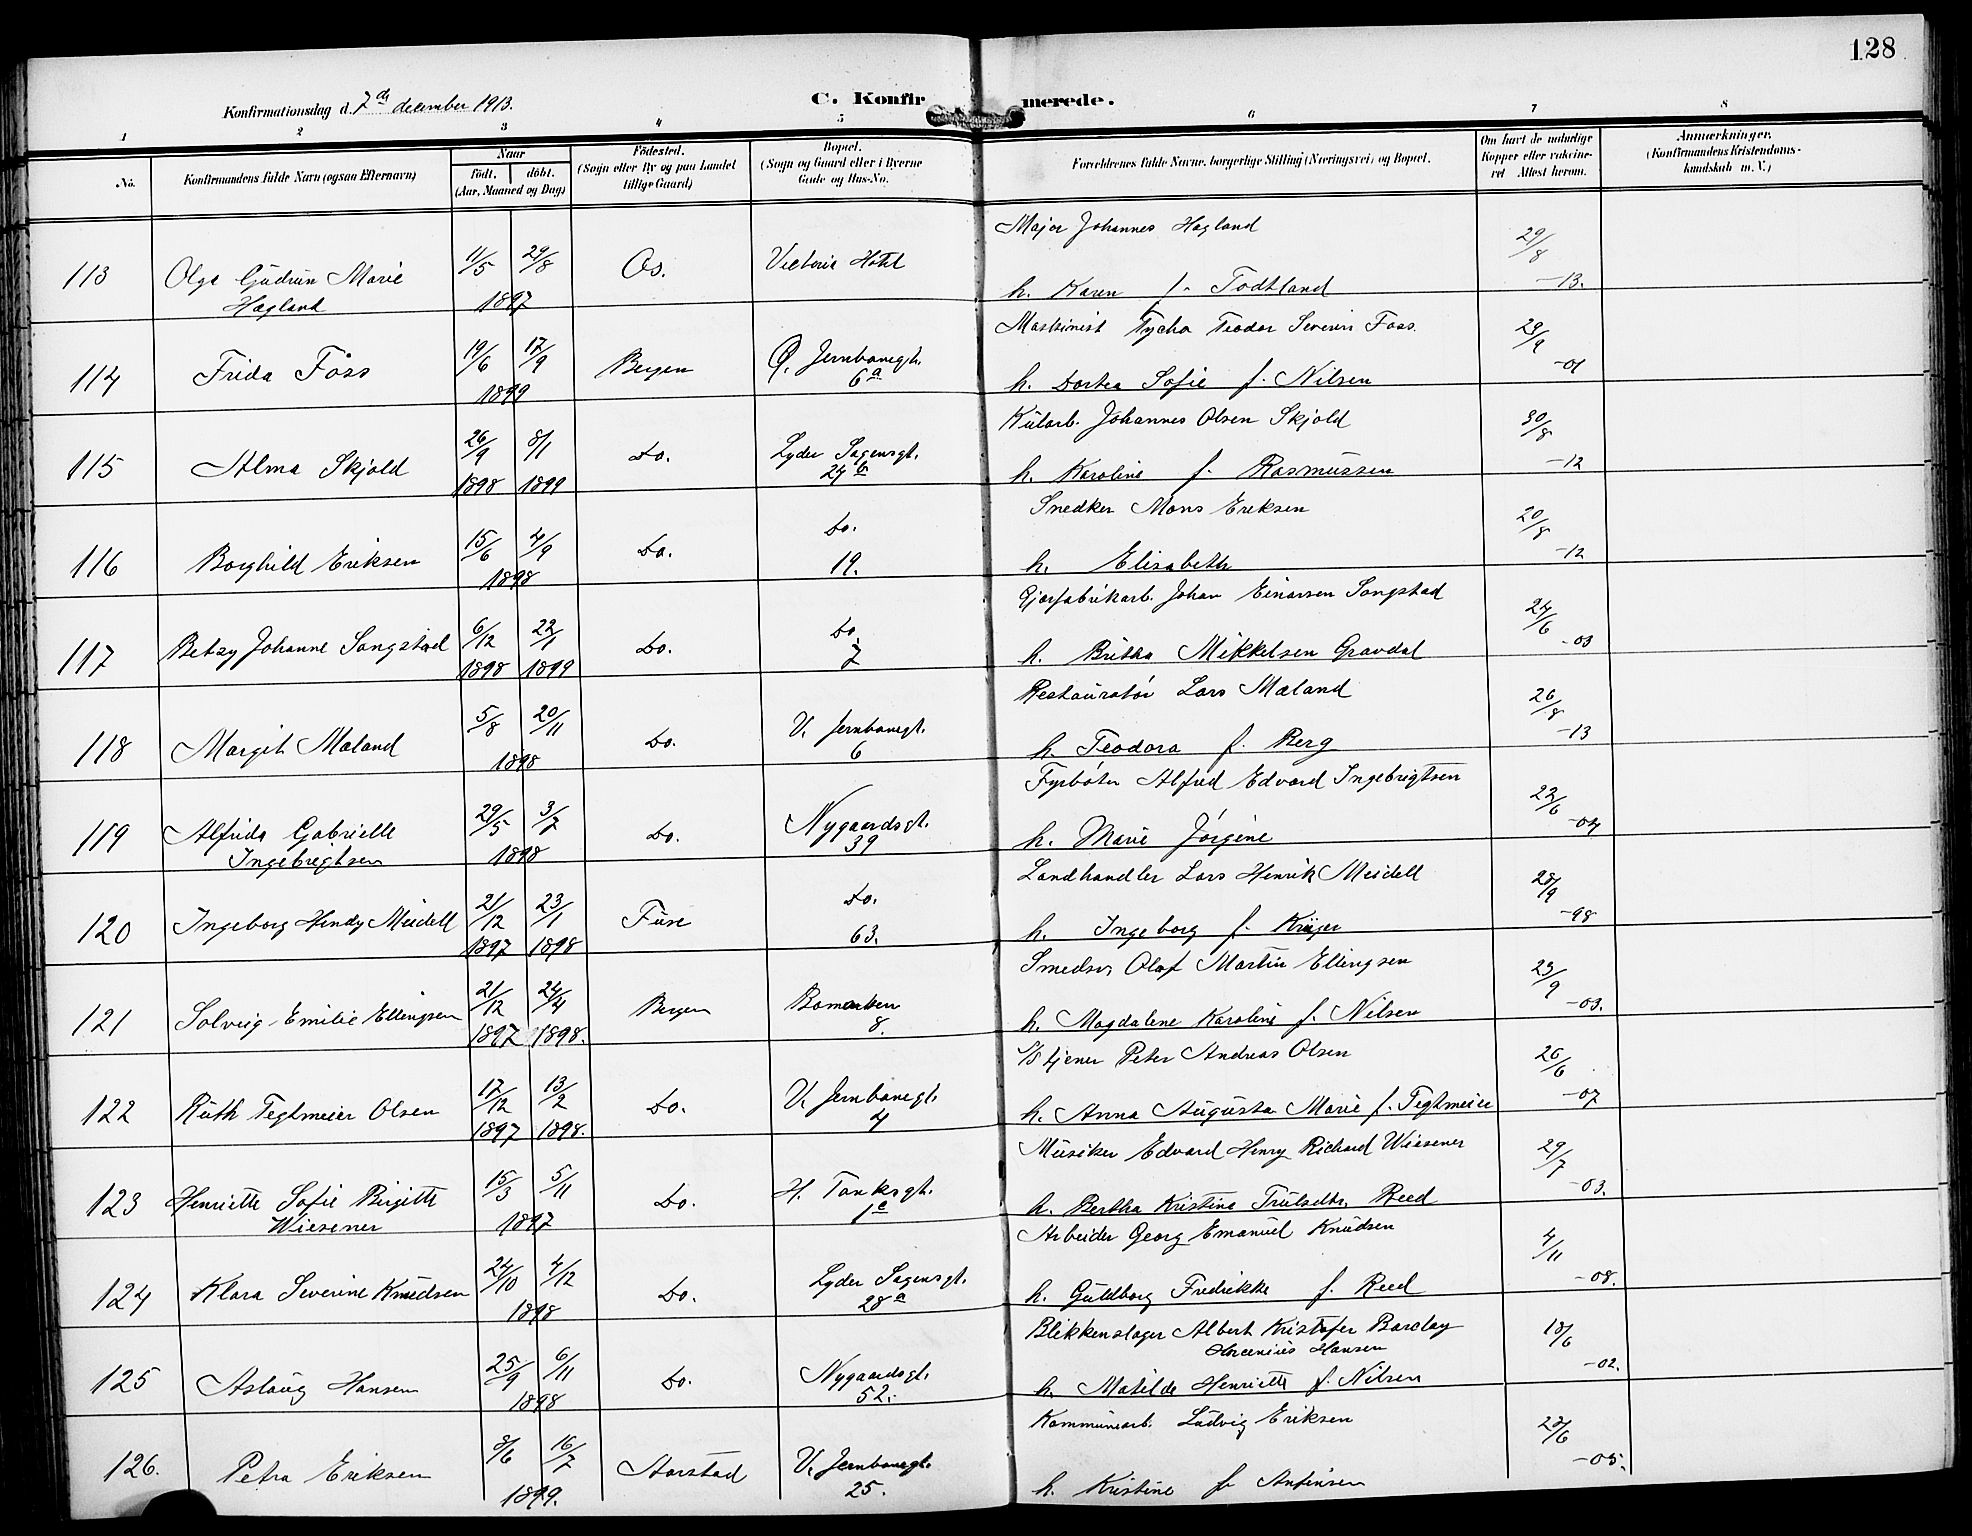 128
Konfirmationsdag d. 7de december 1913.
C. Konfirmerede.
1 2 3 4 5 6 7 8
No. Konfirmandens fulde Navn (ogsaa Efternavn)
Naar
født. døbt.
(Aar, Maaned og Dag)
Fødested.
(Sogn eller By og paa Landet
tillige Gaard)
Bopæl.
(Sogn og Gaard eller i Byerne
Gade og Hus-No.
Forældrenes fulde Navne, borgerlige Stilling (Næringsvei) og Bopæl.
Om havt de naturlige
Kopper eller vakcine-
ret Attest herom.
Anmærkninger.
(Konfirmandens Kristendoms-
kundskab m. V.)
Major Johannes Hagland
113 Olga Gudrun Marie 11/5 29/8 Os. Victoria Hotel 29/8
Hagland 1897 h. Karen f. Todtland -13.
Maskinist Tycho Teodor Severin Foss.
114 Frida Foss 19/6 17/9 Bergen Ø. Jernbanegt. 29/9
1899 6a h. Dortea Sofie f. Nilsen -01
Kularb. Johannes Olsen Skjold
115 Alma Skjold 26/9 8/1 Do. Lyder Sagensgt. 30/8
1898 1899 24b h. Karoline f. Rasmussen -12
Snedker Mons Eriksen
116 Borghild Eriksen 15/6 4/9 Do. Do. 20/8
1898 19. h. Elisabeth -12
Gjærfabrikarb. Johan Einarsen Songstad
117 Betzy Johanne Songstad 6/12 22/1 Do. Do. 24/6
1898 1899 7 h. Britha Mikkelsen Gravdal -03
Restauratør Lars Mæland
118 Margit Mæland 5/8 20/11 Do. V. Jernbanegt. 26/8
1898 6 h. Teodora f. Berg -13
Fyrbøter Alfred Edvard Ingebrigtsen
119 Alfrida Gabrielle 29/5 3/7 Do. Nygaardsgt. 22/6
Ingebrigtsen 1898 39 h. Marie Jørgine -04
Landhandler Lars Henrik Meidell
120 Ingeborg Hendy Meidell 21/12 23/1 Fuse Do. 28/9
1897 1898 63. h. Ingeborg f. -98
Smedsv. Olaf Martin Ellingsen
121 Solveig Emilie Ellingsen 21/12 24/4 Bergen 23/9
1897 1898. 8. h. Magdalene Karoline f. Nilsen -03.
tjener Peter Andreas Olsen
122 Ruth Tegtmeier Olsen 17/12 13/2 Do. V. Jernbanegt. 26/6
1897 1898. 4 h. Anna Augusta Marie f. Tegtmeier -07
Musiker Edvard Henry Richard Wiesener
123 Henriette Sofie Birgitte 15/3 5/11 Do. H. Tanksgt. 29/7
Wiesener 1897 1c h. Bertha Kristina Trulsdtr. Reed -03.
Arbeider Georg Emanuel Knudsen
124 Klara Severine Knudsen 24/10 4/12 Do. Lyder Sagensgt. 4/11
1898 28a h. Guldborg Fredrikke f. Reed -08.
Blikkenslager Albert Kristofer Barclay
Hansen
125 Aslaug Hansen 25/9 6/11 Do. Nygaardsgt. 18/6
1898 52. h. Matilde Henriette f. Nilsen -02.
Kommunearb. Ludvig Eriksen
126. Petra Eriksen 8/6 16/7 Aarstad V. Jernbanegt. 28/6
1899. 25. h. Kristine f. Anfinsen -05.